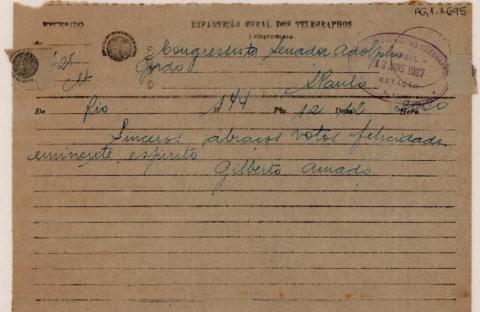 AG.1.1695
RECEBIDO
REPARTIÇÃO GERAL DOS TELEGRAPHOS
Telegramma
De
Congressista Senador Adolpho
Gordo
S Paulo
BRASIL
13 AGOS 1927
ESTAÇÃO
De Rio N 144 Pls 12 Data 12 Hora
Sinceros abraços votos felicidade
eminente espirito
Gilberto Amado